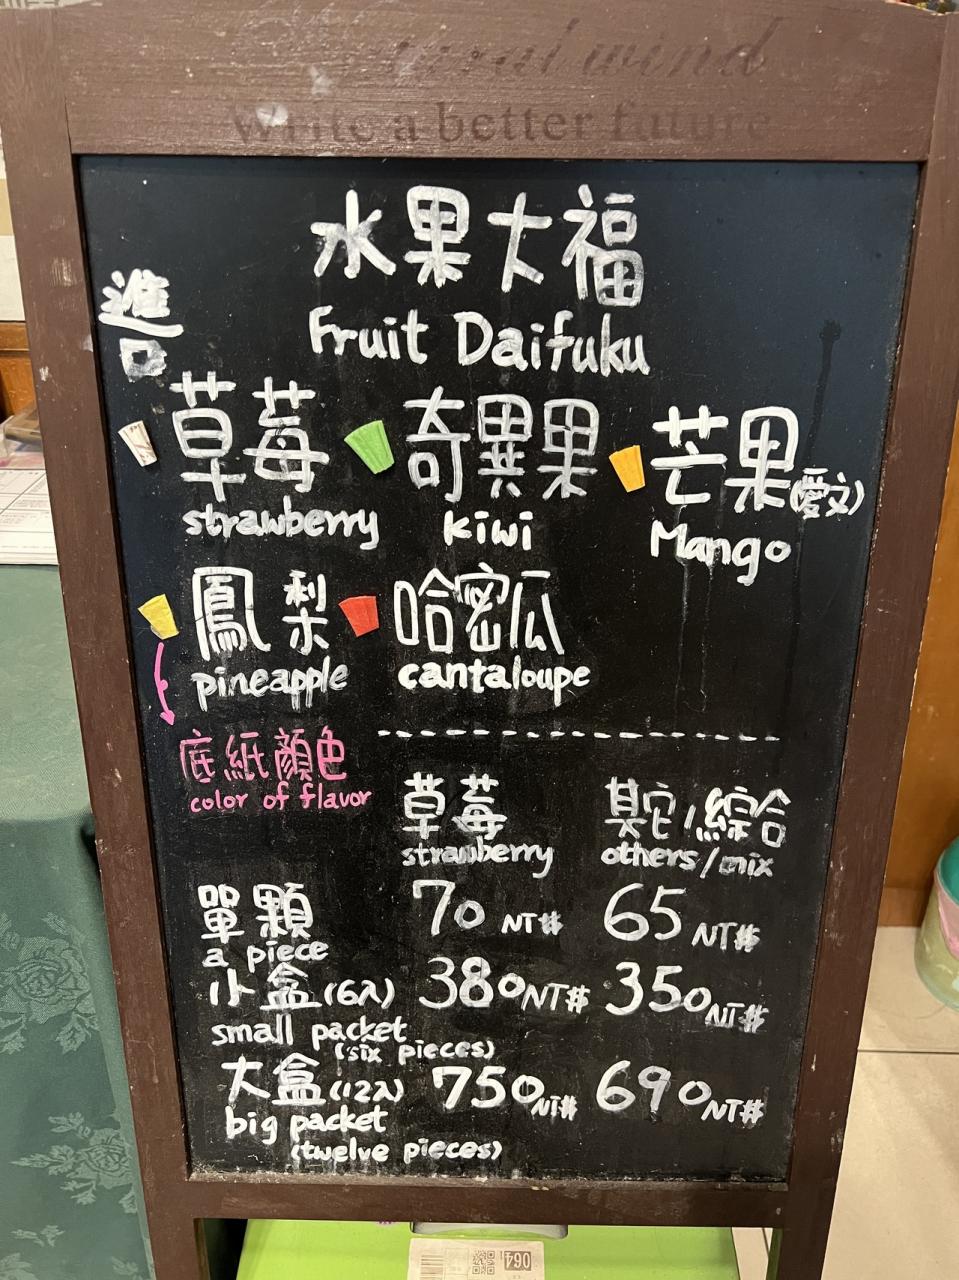 wind
Write a better future
水果大福
Fruit Daifuku
進口
草莓 奇異果 芒果(愛文)
strawberry kiwi Mango
鳳梨 哈密瓜
pineapple cantaloupe
底紙顏色
color of flavor
草莓 其它/綜合
strawberry others/mix
單顆 70 NT$ 65 NT$
a piece
小盒(6入) 380NT$ 350NT$
small packet
(six pieces)
大盒(12入) 750NT$ 690NT$
big packet
(twelve pieces)
064